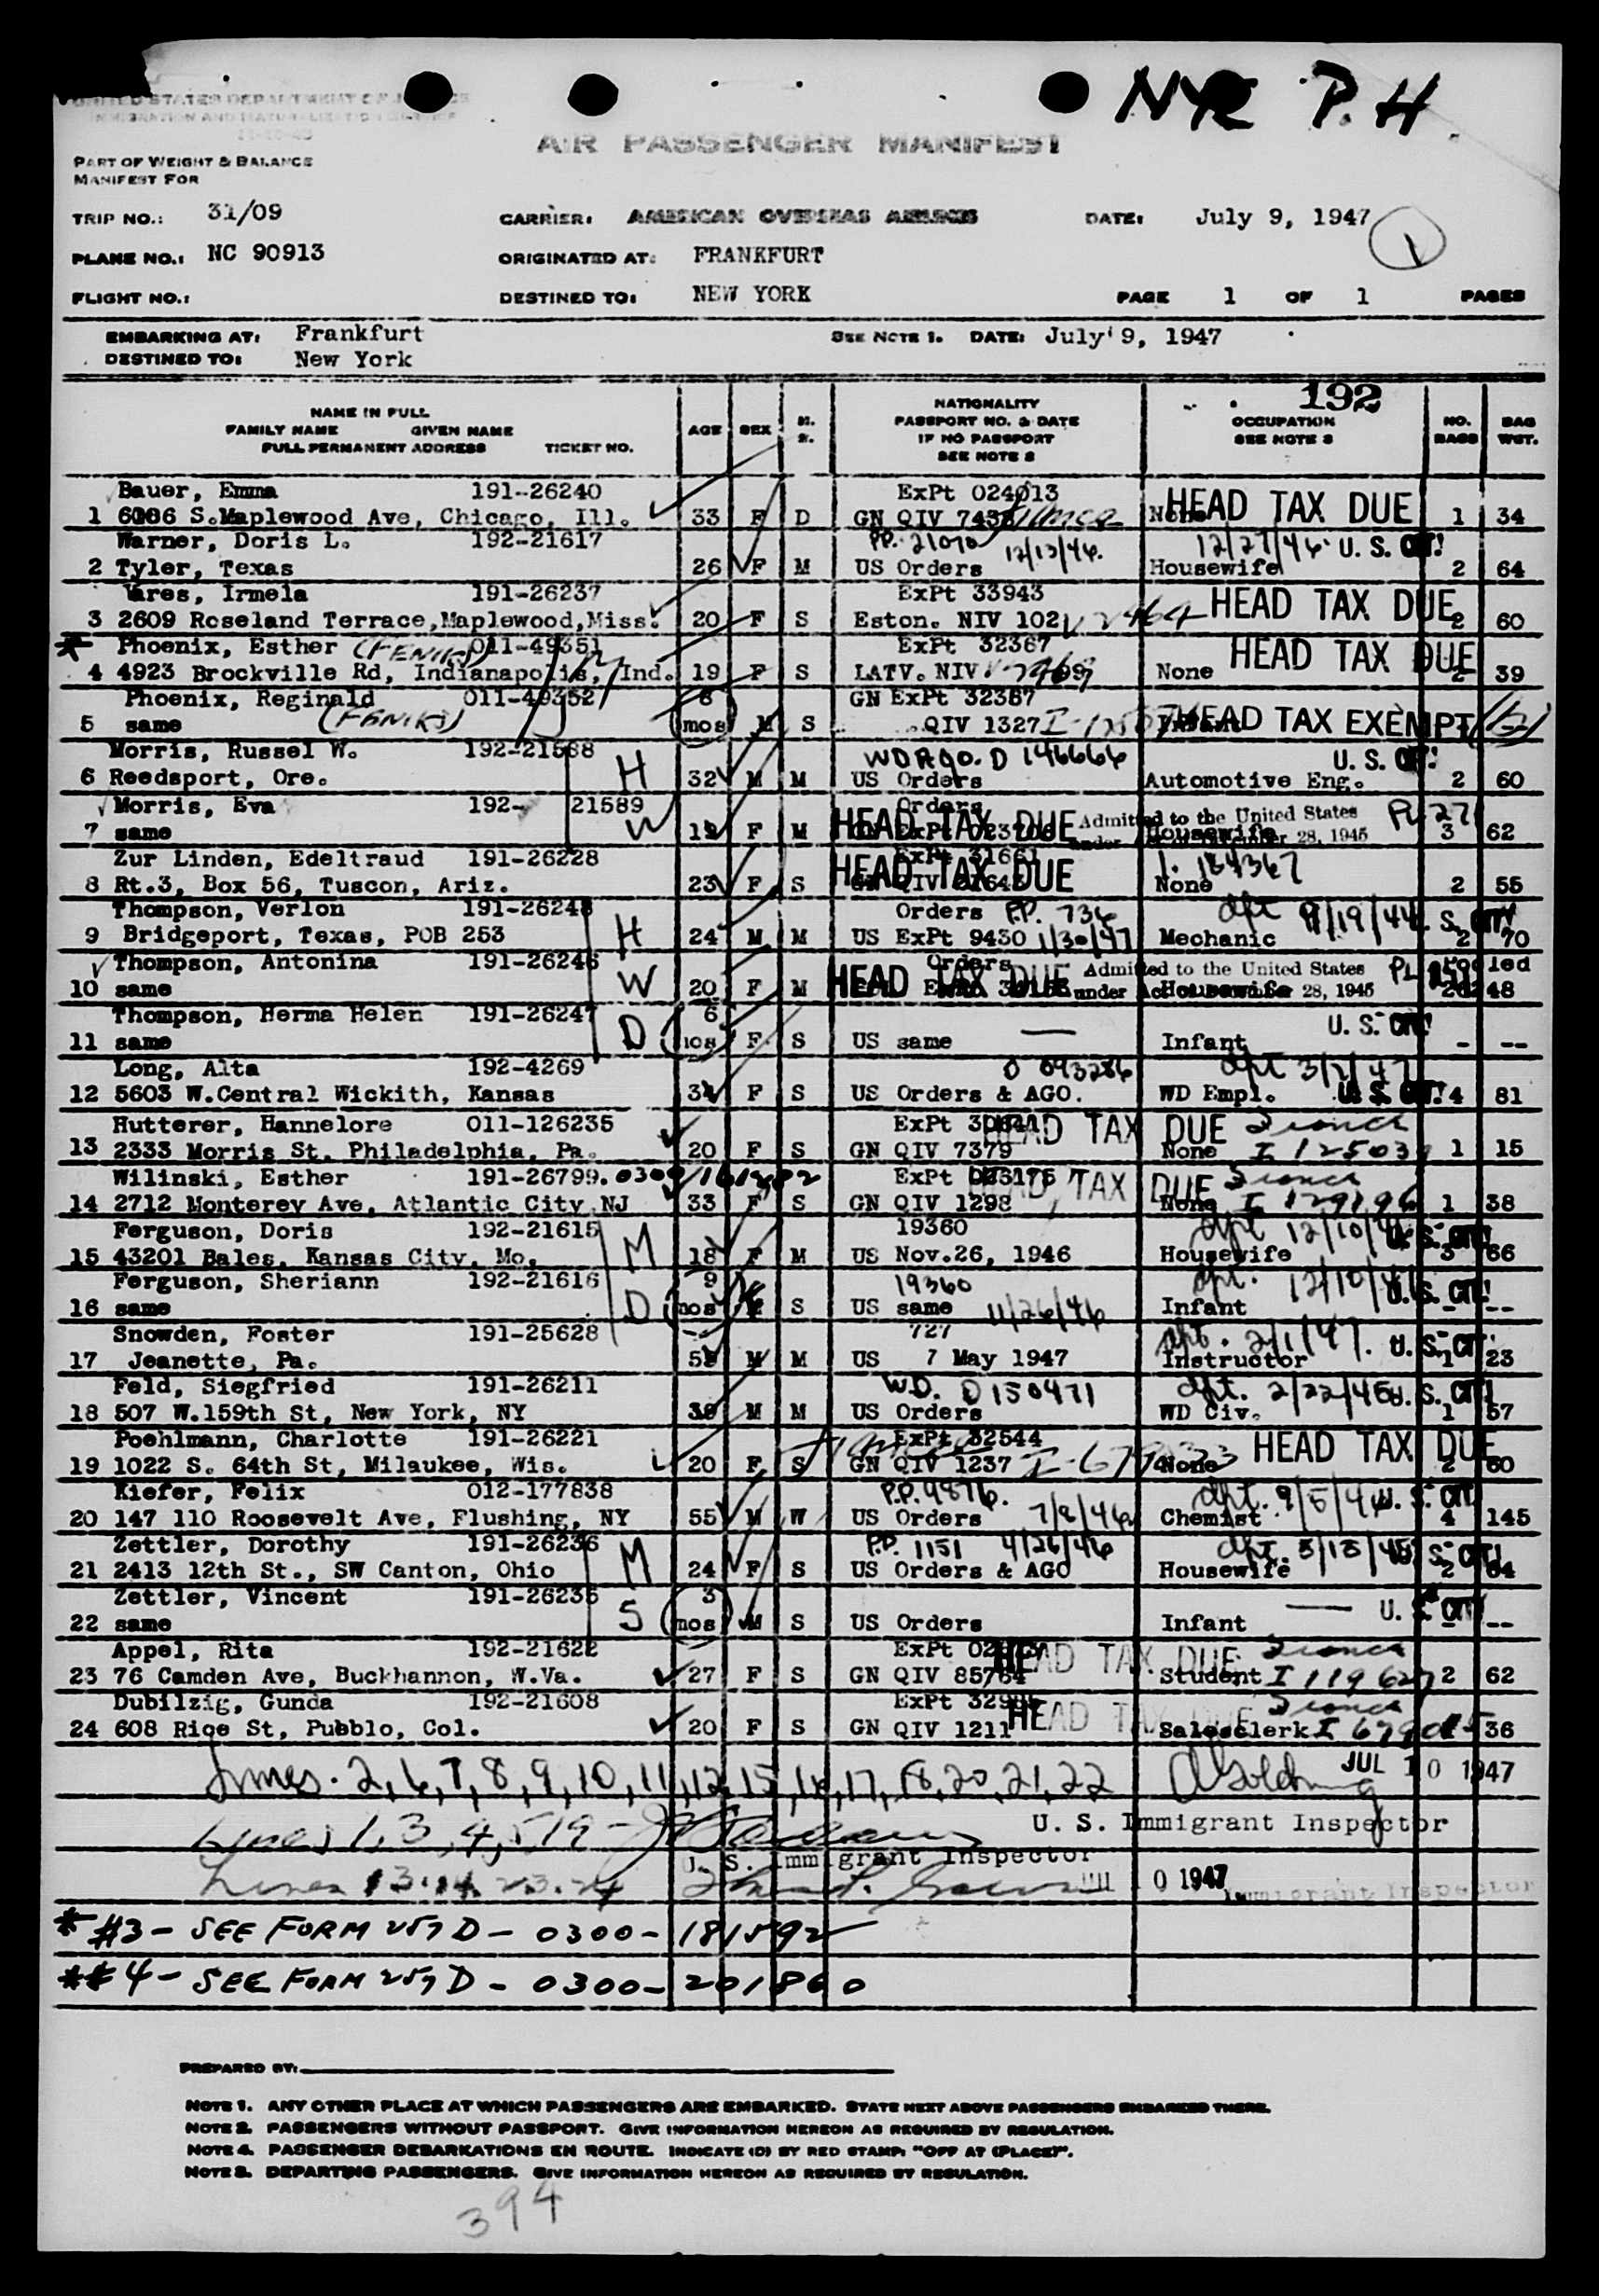 NYC P.H.
UNITED STATES DEPARTMENT OF JUSTICE
IMMIGRATION AND NATURALIZATION SERVICE
AIR PASSENGER MANIFEST
PART OF WEIGHT & BALANCE
MANIFEST FOR
TRIP NO.: 31/09 CARRIER: AMERICAN OVERSEAS AIRLINES DATE: July 9, 1947
1
PLANE NO.: NC 90913 ORIGINATED AT: FRANKFURT
FLIGHT NO.: DESTINED TO: NEW YORK PAGE 1 OF 1 PAGES
EMBARKING AT: Frankfurt SEE NOTE 1. DATE: July 9, 1947
DESTINED TO: New York
192
NAME IN FULL
FAMILY NAME GIVEN NAME
FULL PERMANENT ADDRESS TICKET NO. AGE SEX M. S. NATIONALITY PASSPORT NO. & DATE IF NO PASSPORT SEE NOTE 2 OCCUPATION SEE NOTE 3 NO. BAGS BAG WGT.
Bauer, Emma 191-26240 ExPt 024013 HEAD TAX DUE
1 6036 S.Maplewood Ave, Chicago, Ill. 33 F D GN QIV None 1 34
Warner, Doris L. 192-21617 PP. 21070 12/13/46. 12/27/46 U. S. CIT!
2 Tyler, Texas 26 F M US Orders Housewife 2 64
Vares, Irmela 191-26237 ExPt 33943 HEAD TAX DUE
3 2609 Roseland Terrace,Maplewood,Miss. 20 F S Eston. NIV 102 2 60
* Phoenix, Esther (FENIKS) 011-49351 ExPt 32367 HEAD TAX DUE
4 4923 Brockville Rd, Indianapolis, Ind. 19 F S LATV. NIV None 2 39
Phoenix, Reginald 011-49352 8 GN ExPt 32367
5 same (FENIKS) mos M S QIV 1327 HEAD TAX EXEMPT
Morris, Russel W. 192-21588 WDAGO. D 146666 U. S. CIT!
6 Reedsport, Ore. H 32 M M US Orders Automotive Eng. 2 60
Morris, Eva 192- 21589 Orders HEAD TAX DUE Admitted to the United States PL 271
7 same W F M Housewife under Act of December 28, 1945 3 62
Zur Linden, Edeltraud 191-26228 HEAD TAX DUE
8 Rt.3, Box 56, Tuscon, Ariz. 23 F S None 2 55
Thompson, Verlon 191-26248 Orders P.P. 736 dpt 9/19/44 U. S. CIT!
9 Bridgeport, Texas, POB 253 H 24 M M US ExPt 9430 1/30/47 Mechanic 2 70
Thompson, Antonina 191-26246 Orders HEAD TAX DUE Admitted to the United States PL pooled
10 same W 20 F M Housewife under Act of December 28, 1945 48
Thompson, Herma Helen 191-26247 6 U. S. CIT!
11 same D mos F S US same — Infant - --
Long, Alta 192-4269 D 093286 dpt 3/2/47
12 5603 W.Central Wickith, Kansas F S US Orders & AGO. WD Empl. U. S. CIT! 4 81
Hutterer, Hannelore 011-126235 ExPt HEAD TAX DUE
13 2333 Morris St. Philadelphia, Pa. 20 F S GN QIV 7379 None 1 15
Wilinski, Esther 191-26799. ExPt 023175 HEAD TAX DUE
14 2712 Monterey Ave, Atlantic City NJ 33 F S GN QIV 1298 None I 129196 1 38
Ferguson, Doris 192-21615 19360 dpt 12/10/46 U. S. CIT!
15 43201 Bales, Kansas City, Mo. M 18 F M US Nov.26, 1946 Housewife 3 66
Ferguson, Sheriann 192-21616 9 19360 dpt. 12/10/46 U. S. CIT!
16 same D mos F S US same 11/26/46 Infant - --
Snowden, Foster 191-25628 727 dpt. 2/1/47. U. S. CIT!
17 Jeanette, Pa. M M US 7 May 1947 Instructor 1 23
Feld, Siegfried 191-26211 W.D. D 150471 dpt. 2/22/46 U. S. CIT!
18 507 W.159th St, New York, NY M M US Orders WD Civ. 1 57
Poehlmann, Charlotte 191-26221 ExPt 32544 HEAD TAX DUE
19 1022 S. 64th St, Milaukee, Wis. 20 F S GN QIV 1237 None 2 60
Kiefer, Felix 012-177838 P.P. 9876. dpt. 9/5/46 U. S. CIT!
20 147 110 Roosevelt Ave, Flushing, NY 55 M W US Orders 7/8/46 Chemist 4 145
Zettler, Dorothy 191-26236 P.P. 1151 4/26/46 dpt. U. S. CIT!
21 2413 12th St., SW Canton, Ohio M 24 F S US Orders & AGO Housewife 2 64
Zettler, Vincent 191-26235 3 — U. S. CIT!
22 same S mos M S US Orders Infant - --
Appel, Rita 192-21622 ExPt HEAD TAX DUE
23 76 Camden Ave, Buckhannon, W.Va. 27 F S GN QIV 85764 Student I 119627 2 62
Dubilzig, Gunda 192-21608 ExPt HEAD TAX DUE
24 608 Rice St, Pueblo, Col. 20 F S GN QIV 1211 Salesclerk 36
Lines. 2,6,7,8,9,10,11,12,15,16,17,18,20,21,22 JUL 10 1947
U. S. Immigrant Inspector
Lines 1,3,4,5,19 -
U. S. Immigrant Inspector
Lines 13.14.23.24 JUL 10 1947 Immigrant Inspector
* #3 - SEE FORM 257D - 0300 - 181592
** 4 - SEE FORM 257D - 0300 - 201860
PREPARED BY:
NOTE 1. ANY OTHER PLACE AT WHICH PASSENGERS ARE EMBARKED. STATE NEXT ABOVE PASSENGERS EMBARKED THERE.
NOTE 2. PASSENGERS WITHOUT PASSPORT. GIVE INFORMATION HEREON AS REQUIRED BY REGULATION.
NOTE 4. PASSENGER DEBARKATIONS EN ROUTE. INDICATE (D) BY RED STAMP: "OFF AT (PLACE)".
NOTE 3. DEPARTING PASSENGERS. GIVE INFORMATION HEREON AS REQUIRED BY REGULATION.
394